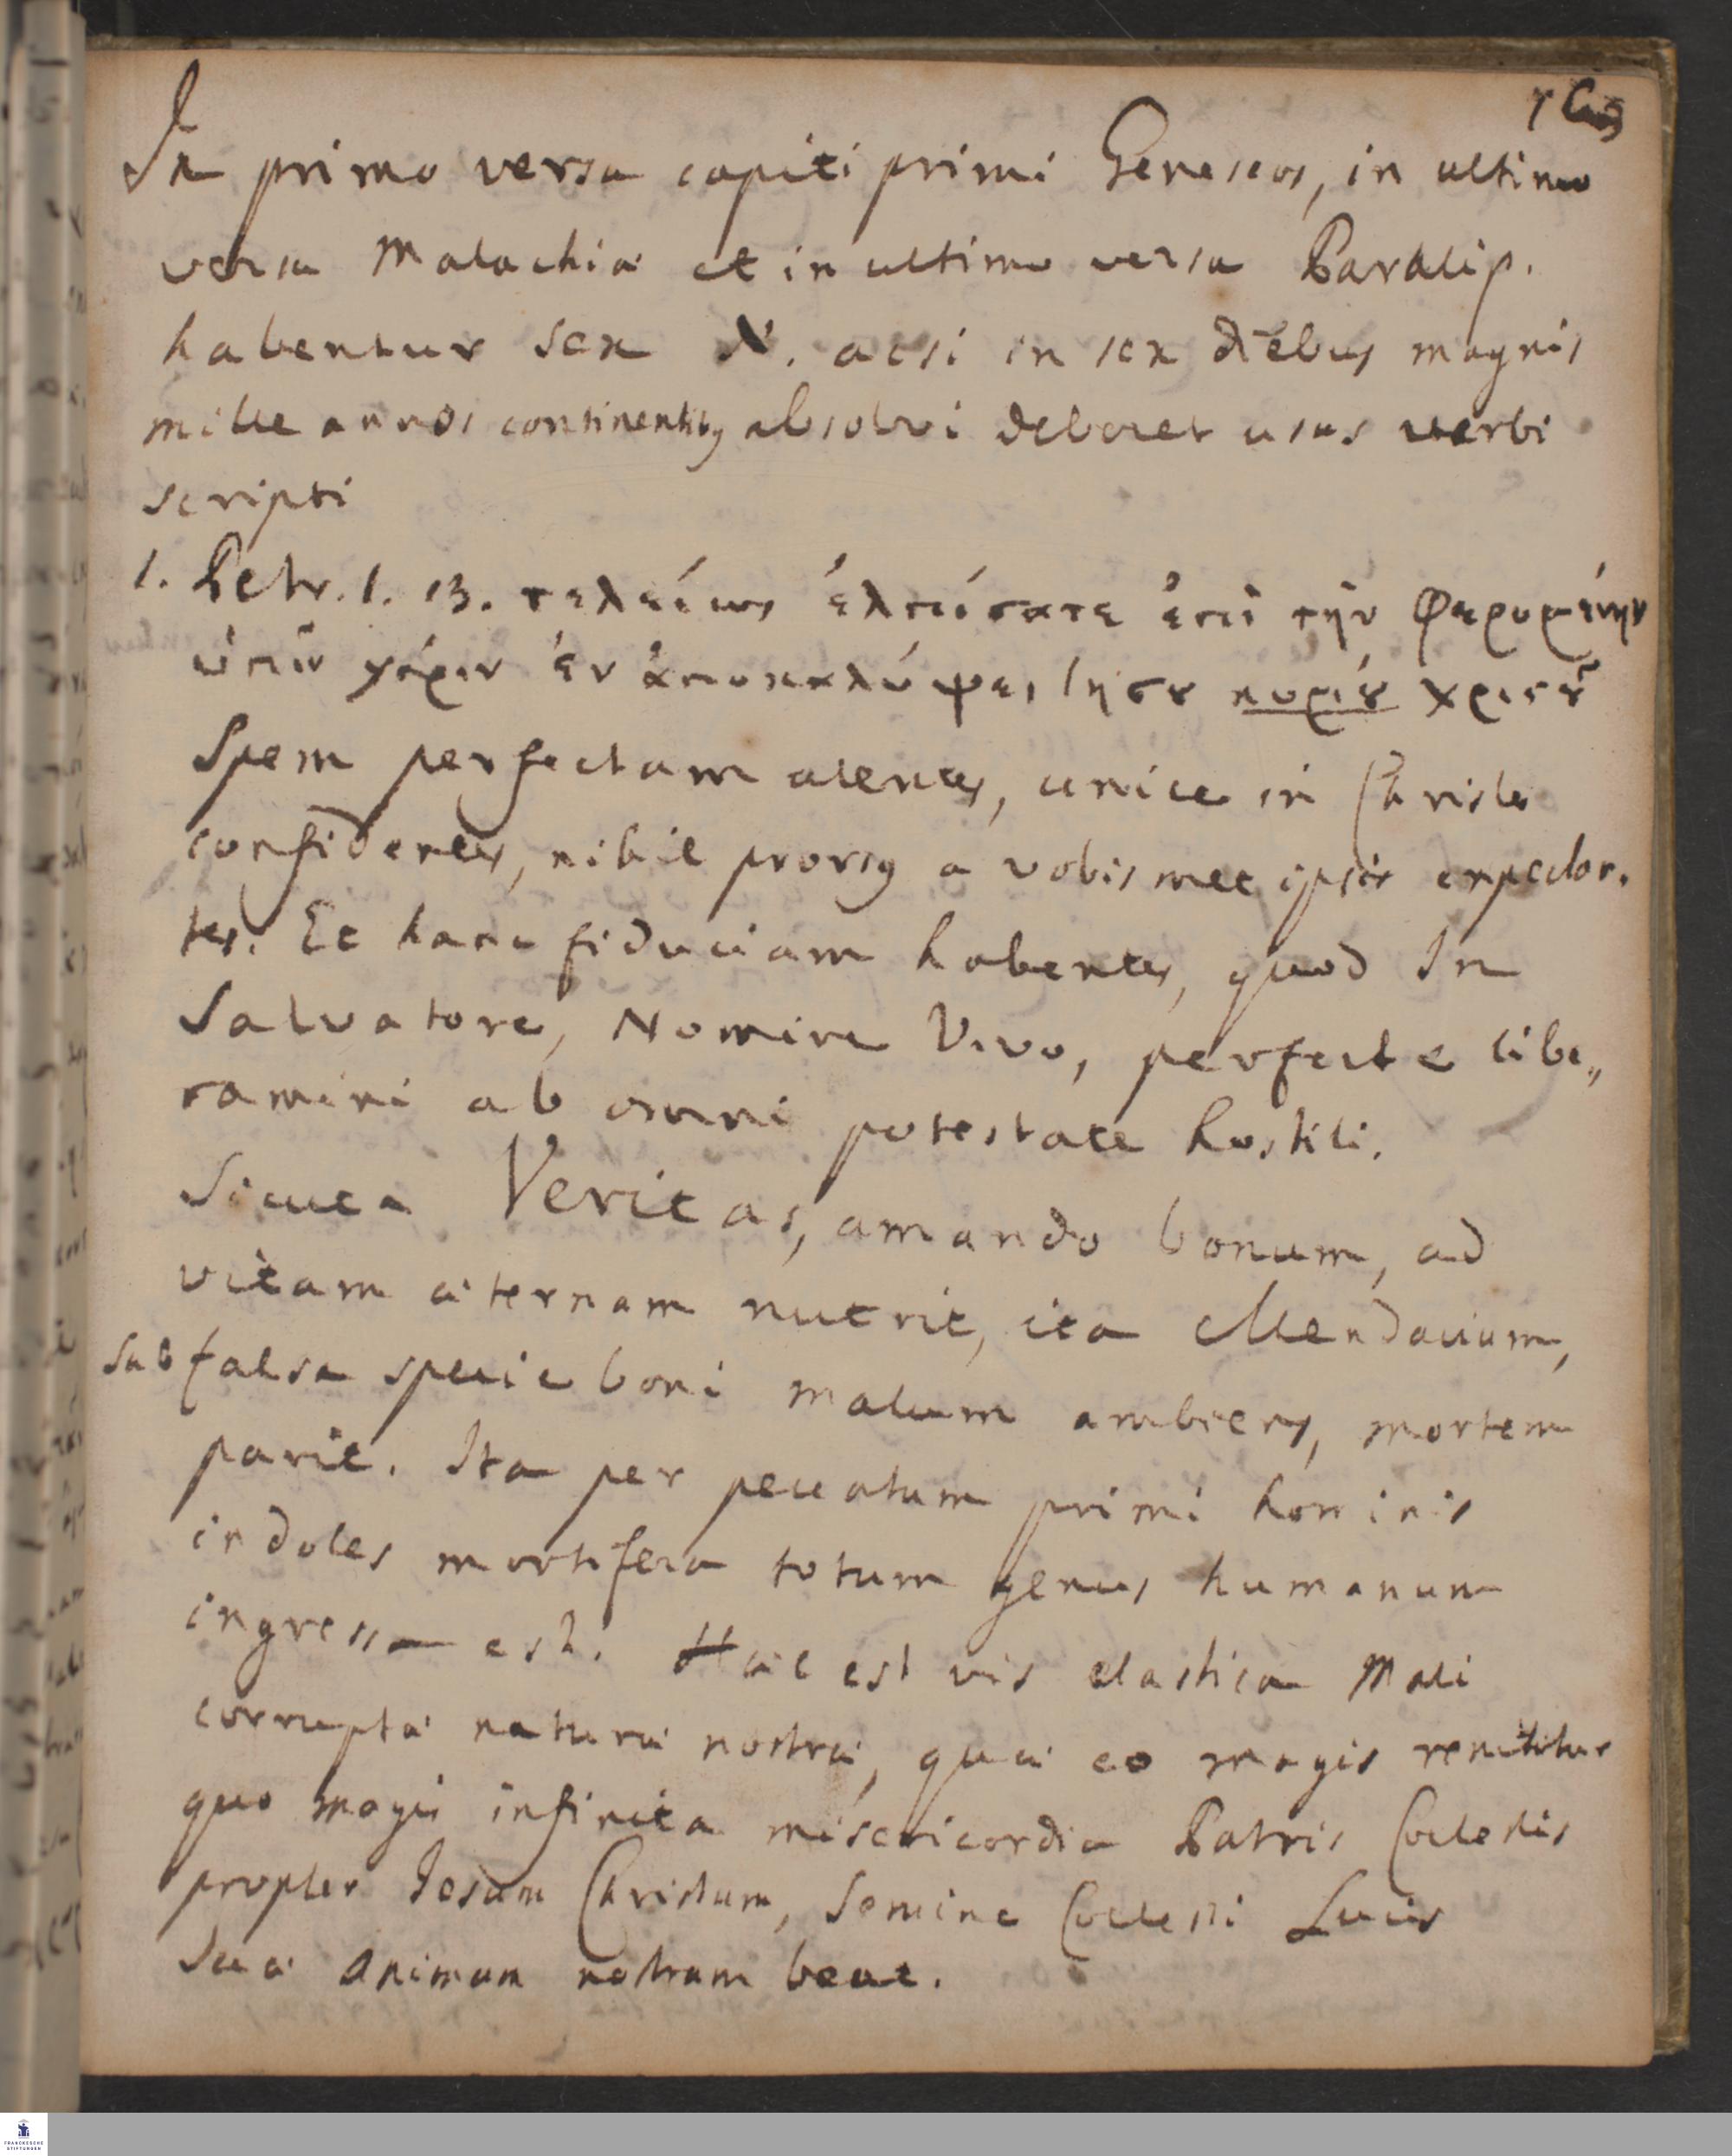 In primo versu capiti primi Geneseos, in ultimo
versu Malachiæ et in ultimo versu Paralip.
habentur sex א. acsi in sex diebus magnis
mille annos continentibq absolvi deberet usus verbi
scripti
1. Petr. 1. 13. τελείως ἐλπίσατε ἐπὶ τὴν φερομένην
ὑμῖν χάριν ἐν ἀποκαλύψει Ιησου κυρίου χριστοῦ
Spem perfectam alentes, unice in Christo
confidentes, nihil prorsq a vobis met ipsis expectan.
tes. Et hanc fiduciam habentes, quod In
Salvatore, Nomine Vivo, perfecte libe„
ramini ab omni potestate hostili.
Sicuta Veritas, amando bonum, ad
vitam æternam nutrit, ita Mendacium,
sub falsa specie boni malum ambiens, mortem
parit. Ita per peccatum primi hominis
indoles mortifera totum genus humanum
ingressa est. Hæc est vis elastica Mali
corruptæ naturæ nostræ, quæ eo magis renititur
quo magis infinita misericordia Patris Coelestis
propter Jesum Christum, Semine Coelesti Lucis
Suæ animam nostram beat.
FRANCKESCHE
STIFTUNGEN